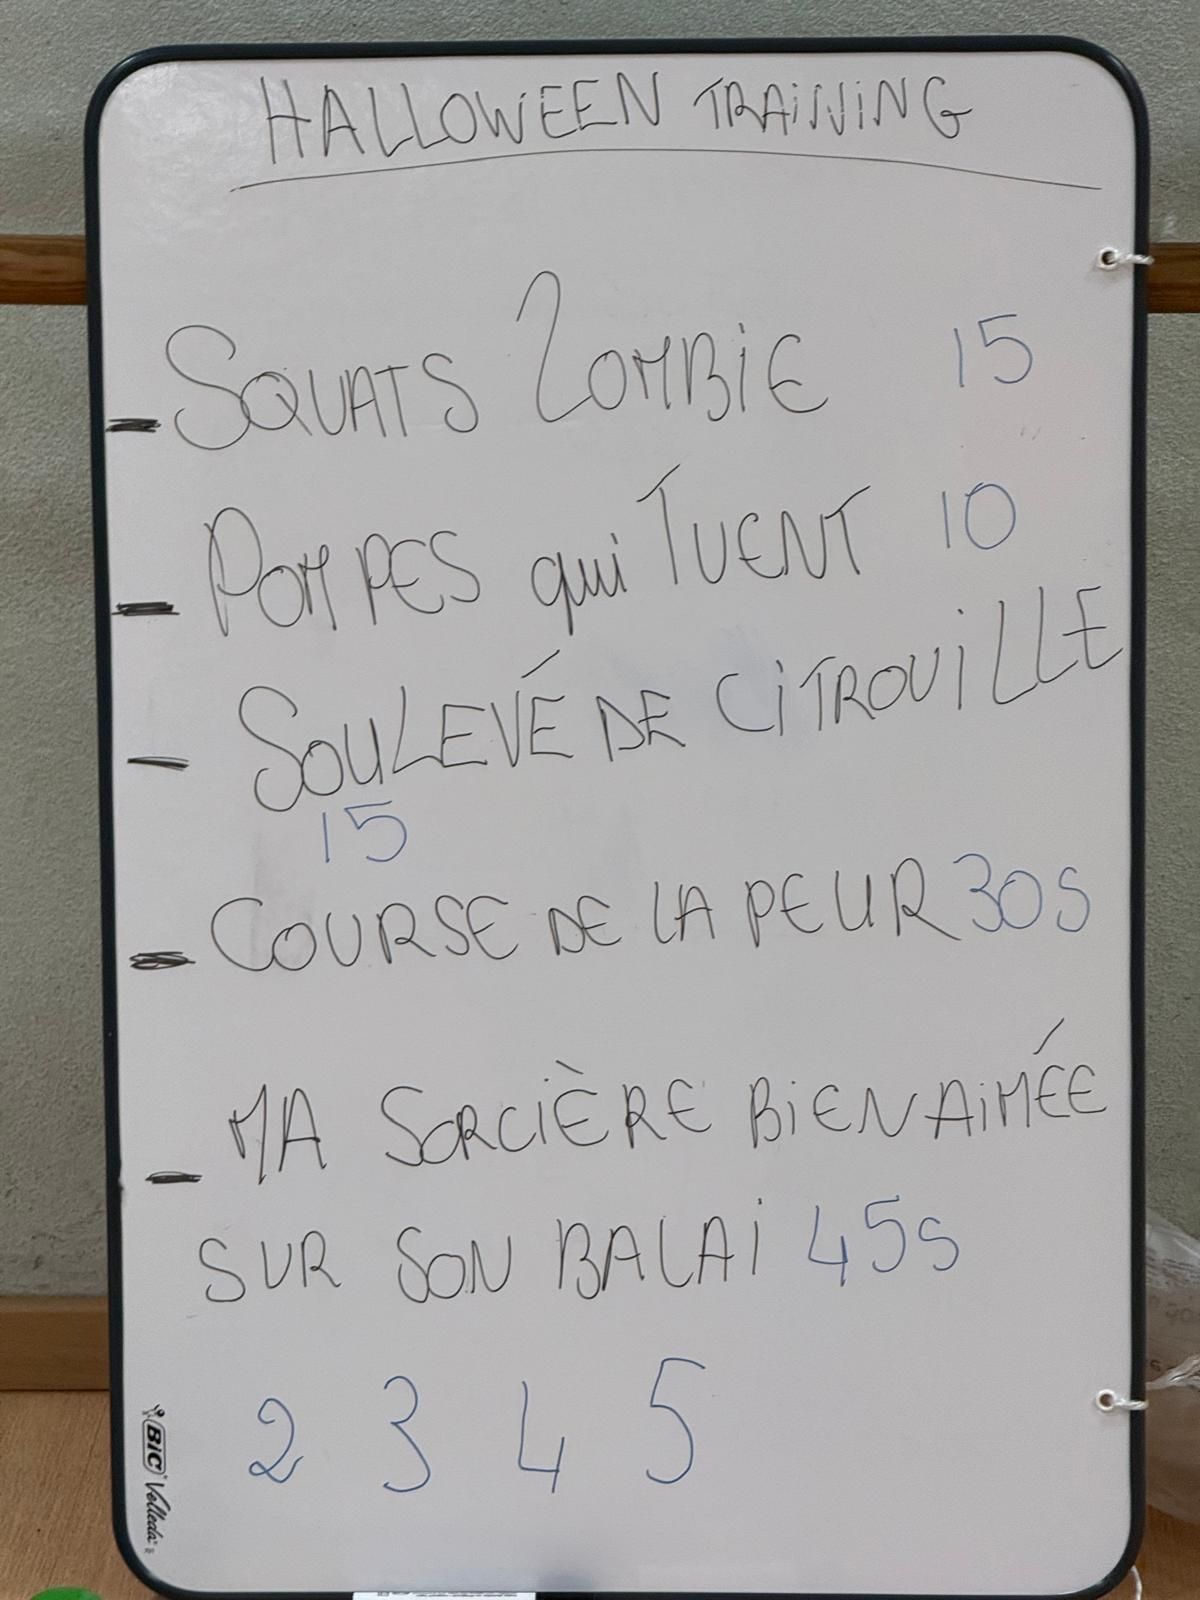 HALLOWEEN TRAINING
- SQUATS ZOMBIE 15
- POMPES qui TUENT 10
- SOULEVÉ DE CITROUILLE
15
- COURSE DE LA PEUR 30s
- MA SORCIÈRE BIENAIMÉE
SUR SON BALAI 45s
2 3 4 5
BIC Velleda